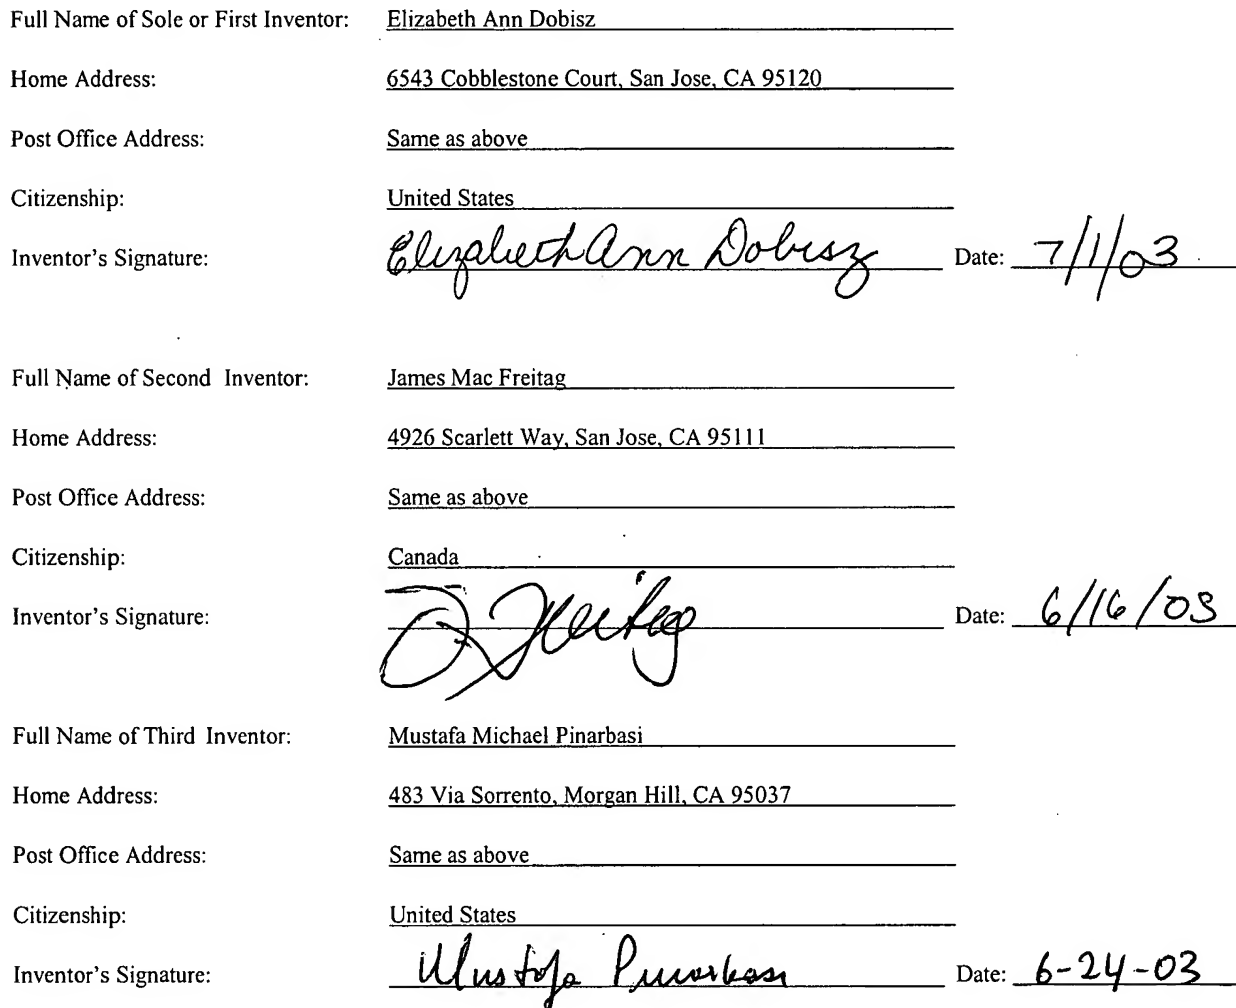 Full Name of Sole or First Inventor: Elizabeth Ann Dobisz
Home Address: 6543 Cobblestone Court, San Jose, CA 95120
Post Office Address: Same as above
Citizenship: United States
Inventor's Signature: Elizabeth Ann Dobisz Date: 7/1/03
Full Name of Second Inventor: James Mac Freitag
Home Address: 4926 Scarlett Way, San Jose, CA 95111
Post Office Address: Same as above
Citizenship: Canada
Inventor's Signature: J. Freitag Date: 6/16/03
Full Name of Third Inventor: Mustafa Michael Pinarbasi
Home Address: 483 Via Sorrento, Morgan Hill, CA 95037
Post Office Address: Same as above
Citizenship: United States
Inventor's Signature: Mustafa Pinarbasi Date: 6-24-03